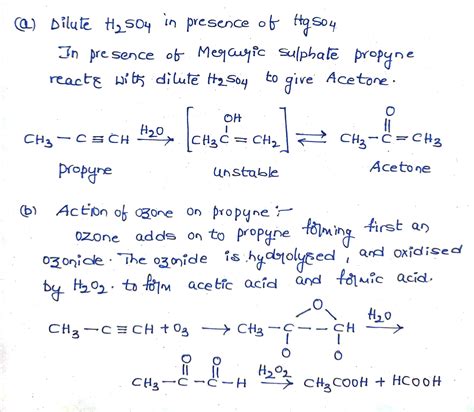 (a) Dilute H2SO4 in presence of HgSO4
In presence of Mercuric sulphate propyne
reacts with dilute H2SO4 to give Acetone.
OH O
CH3 – C ≡ CH H2O→ [CH3C = CH2] ⇌ CH3 – C = CH3
Propyne unstable Acetone
(b) Action of ozone on propyne :–
ozone adds on to propyne forming first an
ozonide. The ozonide is hydrolysed, and oxidised
by H2O2. to form acetic acid and formic acid.
O
CH3 – C ≡ CH + O3 → CH3 – C – – CH H2O→
O O
O O
CH3 – C – C – H H2O2→ CH3COOH + HCOOH